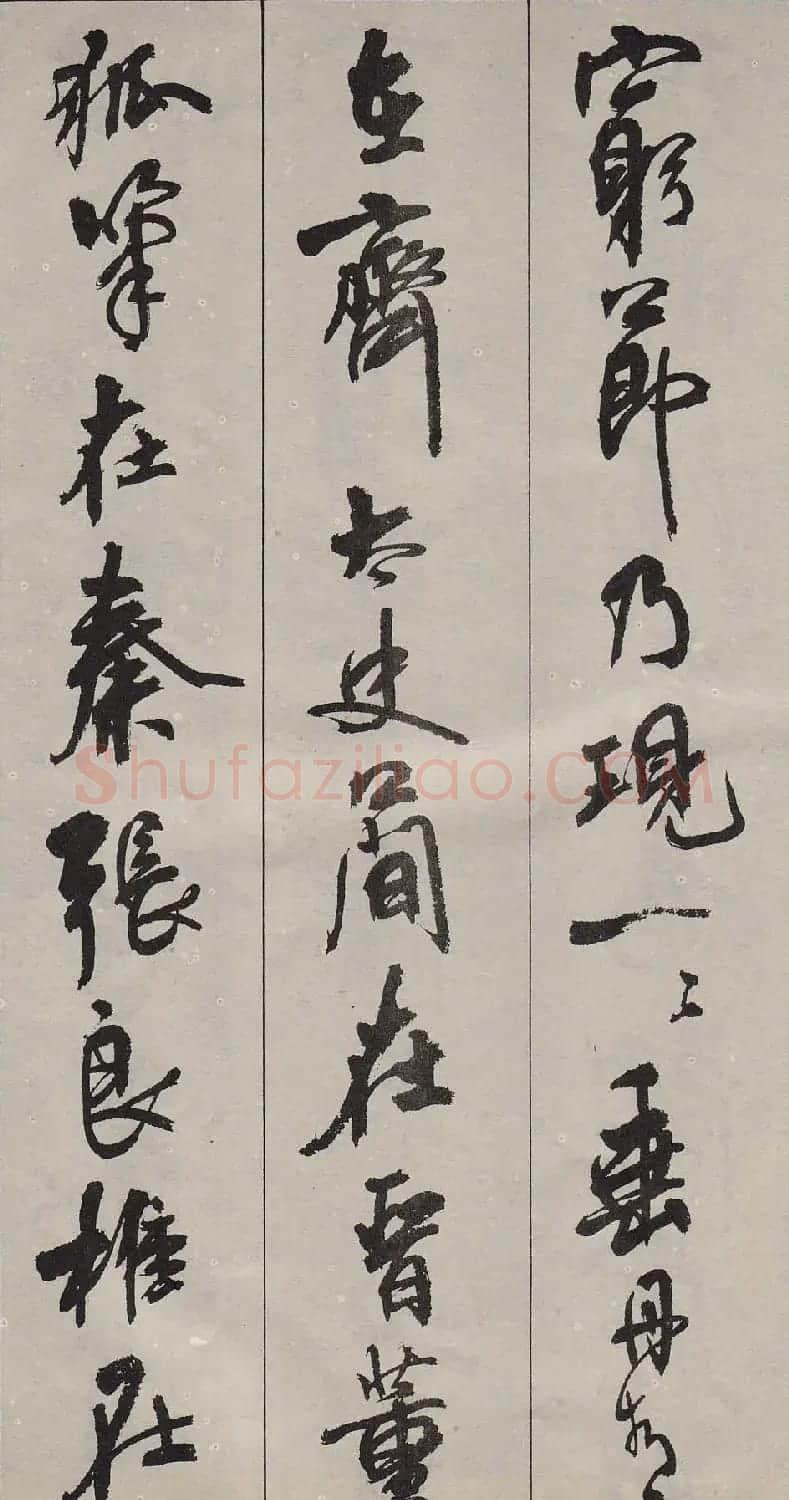 窮節乃現一二垂丹青
在齊太史簡在晋董
狐筆在秦張良椎在
Shufaziliao.COM